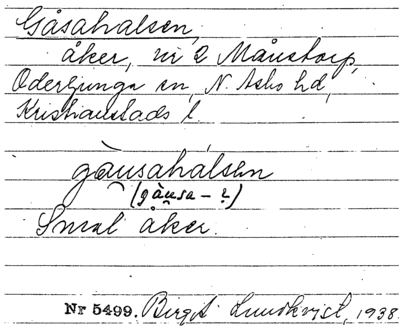 Gåsahalsen,
åker, nr 2 Månstorp,
Oderljunga sn, N. Åsbo hd,
Kristianstads l.
gàusahálsen
(gàusa – ?)
Smal åker.
Nr 5499. Birgit Lundkvist, 1938.